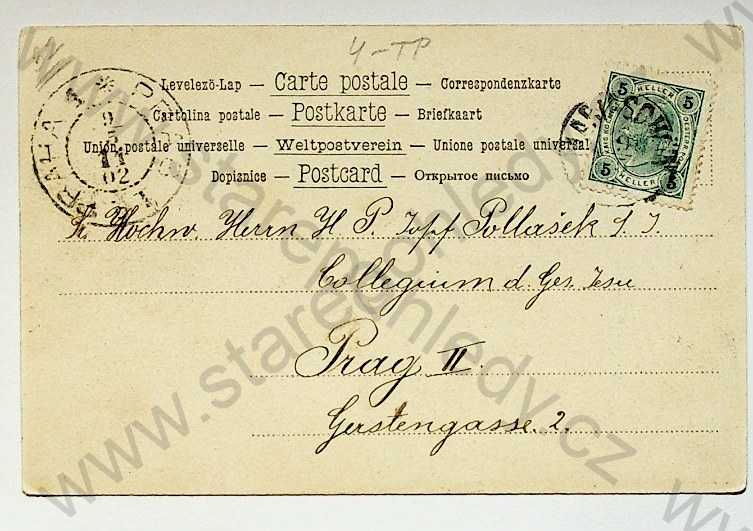 4-TP
Levelezö-Lap — Carte postale — Correspondenzkarte
Cartolina postale — Postkarte — Briefkaart
Union postale universelle — Weltpostverein — Unione postale universal
Dopisnice — Postcard — Открытое письмо
PRAG PRAHA
11
02
5 HELLER 5
5 HELLER 5
Hochw Herrn H P. Josf Pollašek S. J.
Collegium d. Ges. Jesu
Prag II
Gerstengasse 2.
www.starepohledy.cz